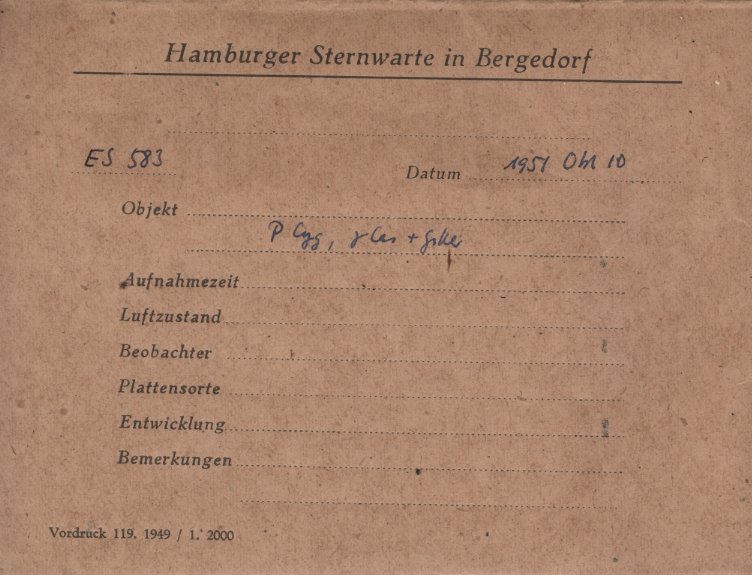 Hamburger Sternwarte in Bergedorf
ES 583
Datum 1951 Okt 10
Objekt
P Cyg, γ Cas + Gitter
Aufnahmezeit
Luftzustand
Beobachter
Plattensorte
Entwicklung
Bemerkungen
Vordruck 119. 1949 / 1. 2000